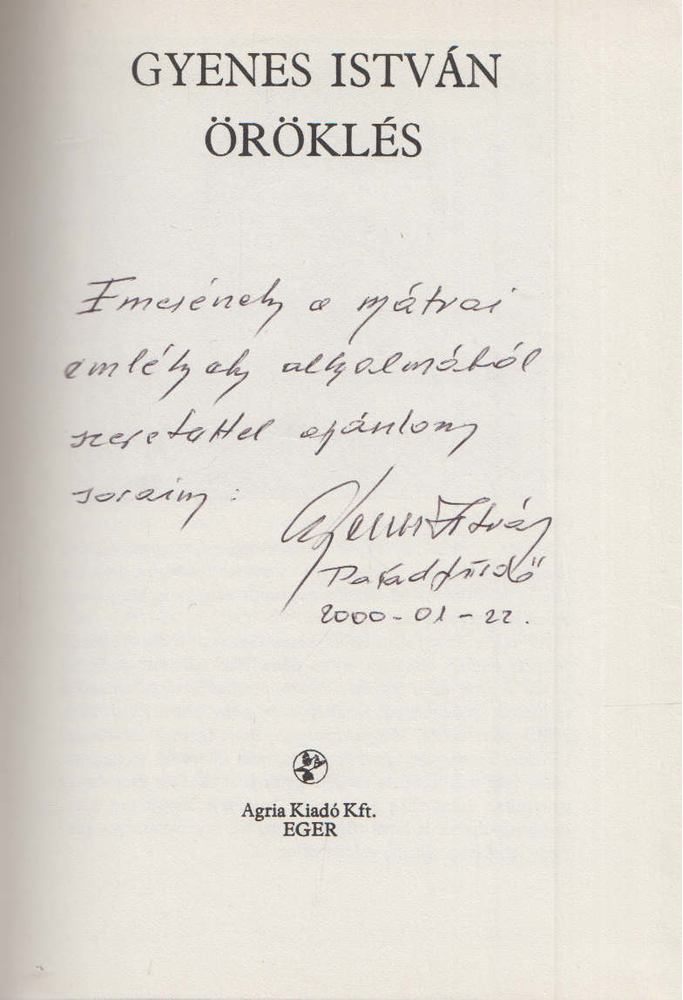 GYENES ISTVÁN
ÖRÖKLÉS
Emesének a mátrai
emlékek alkalmából
szeretettel ajánlom
soraim:
Gyenes István
Parádfürdő
2000-01-22.
Agria Kiadó Kft.
EGER